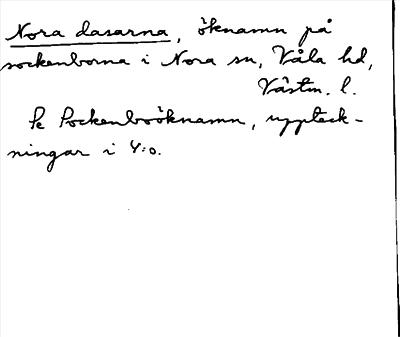 Nora dasarna, öknamn på
sockenborna i Nora sn, Våla hd,
Västm. l.
Se Sockenboöknamn, uppteck-
ningar i 4:o.